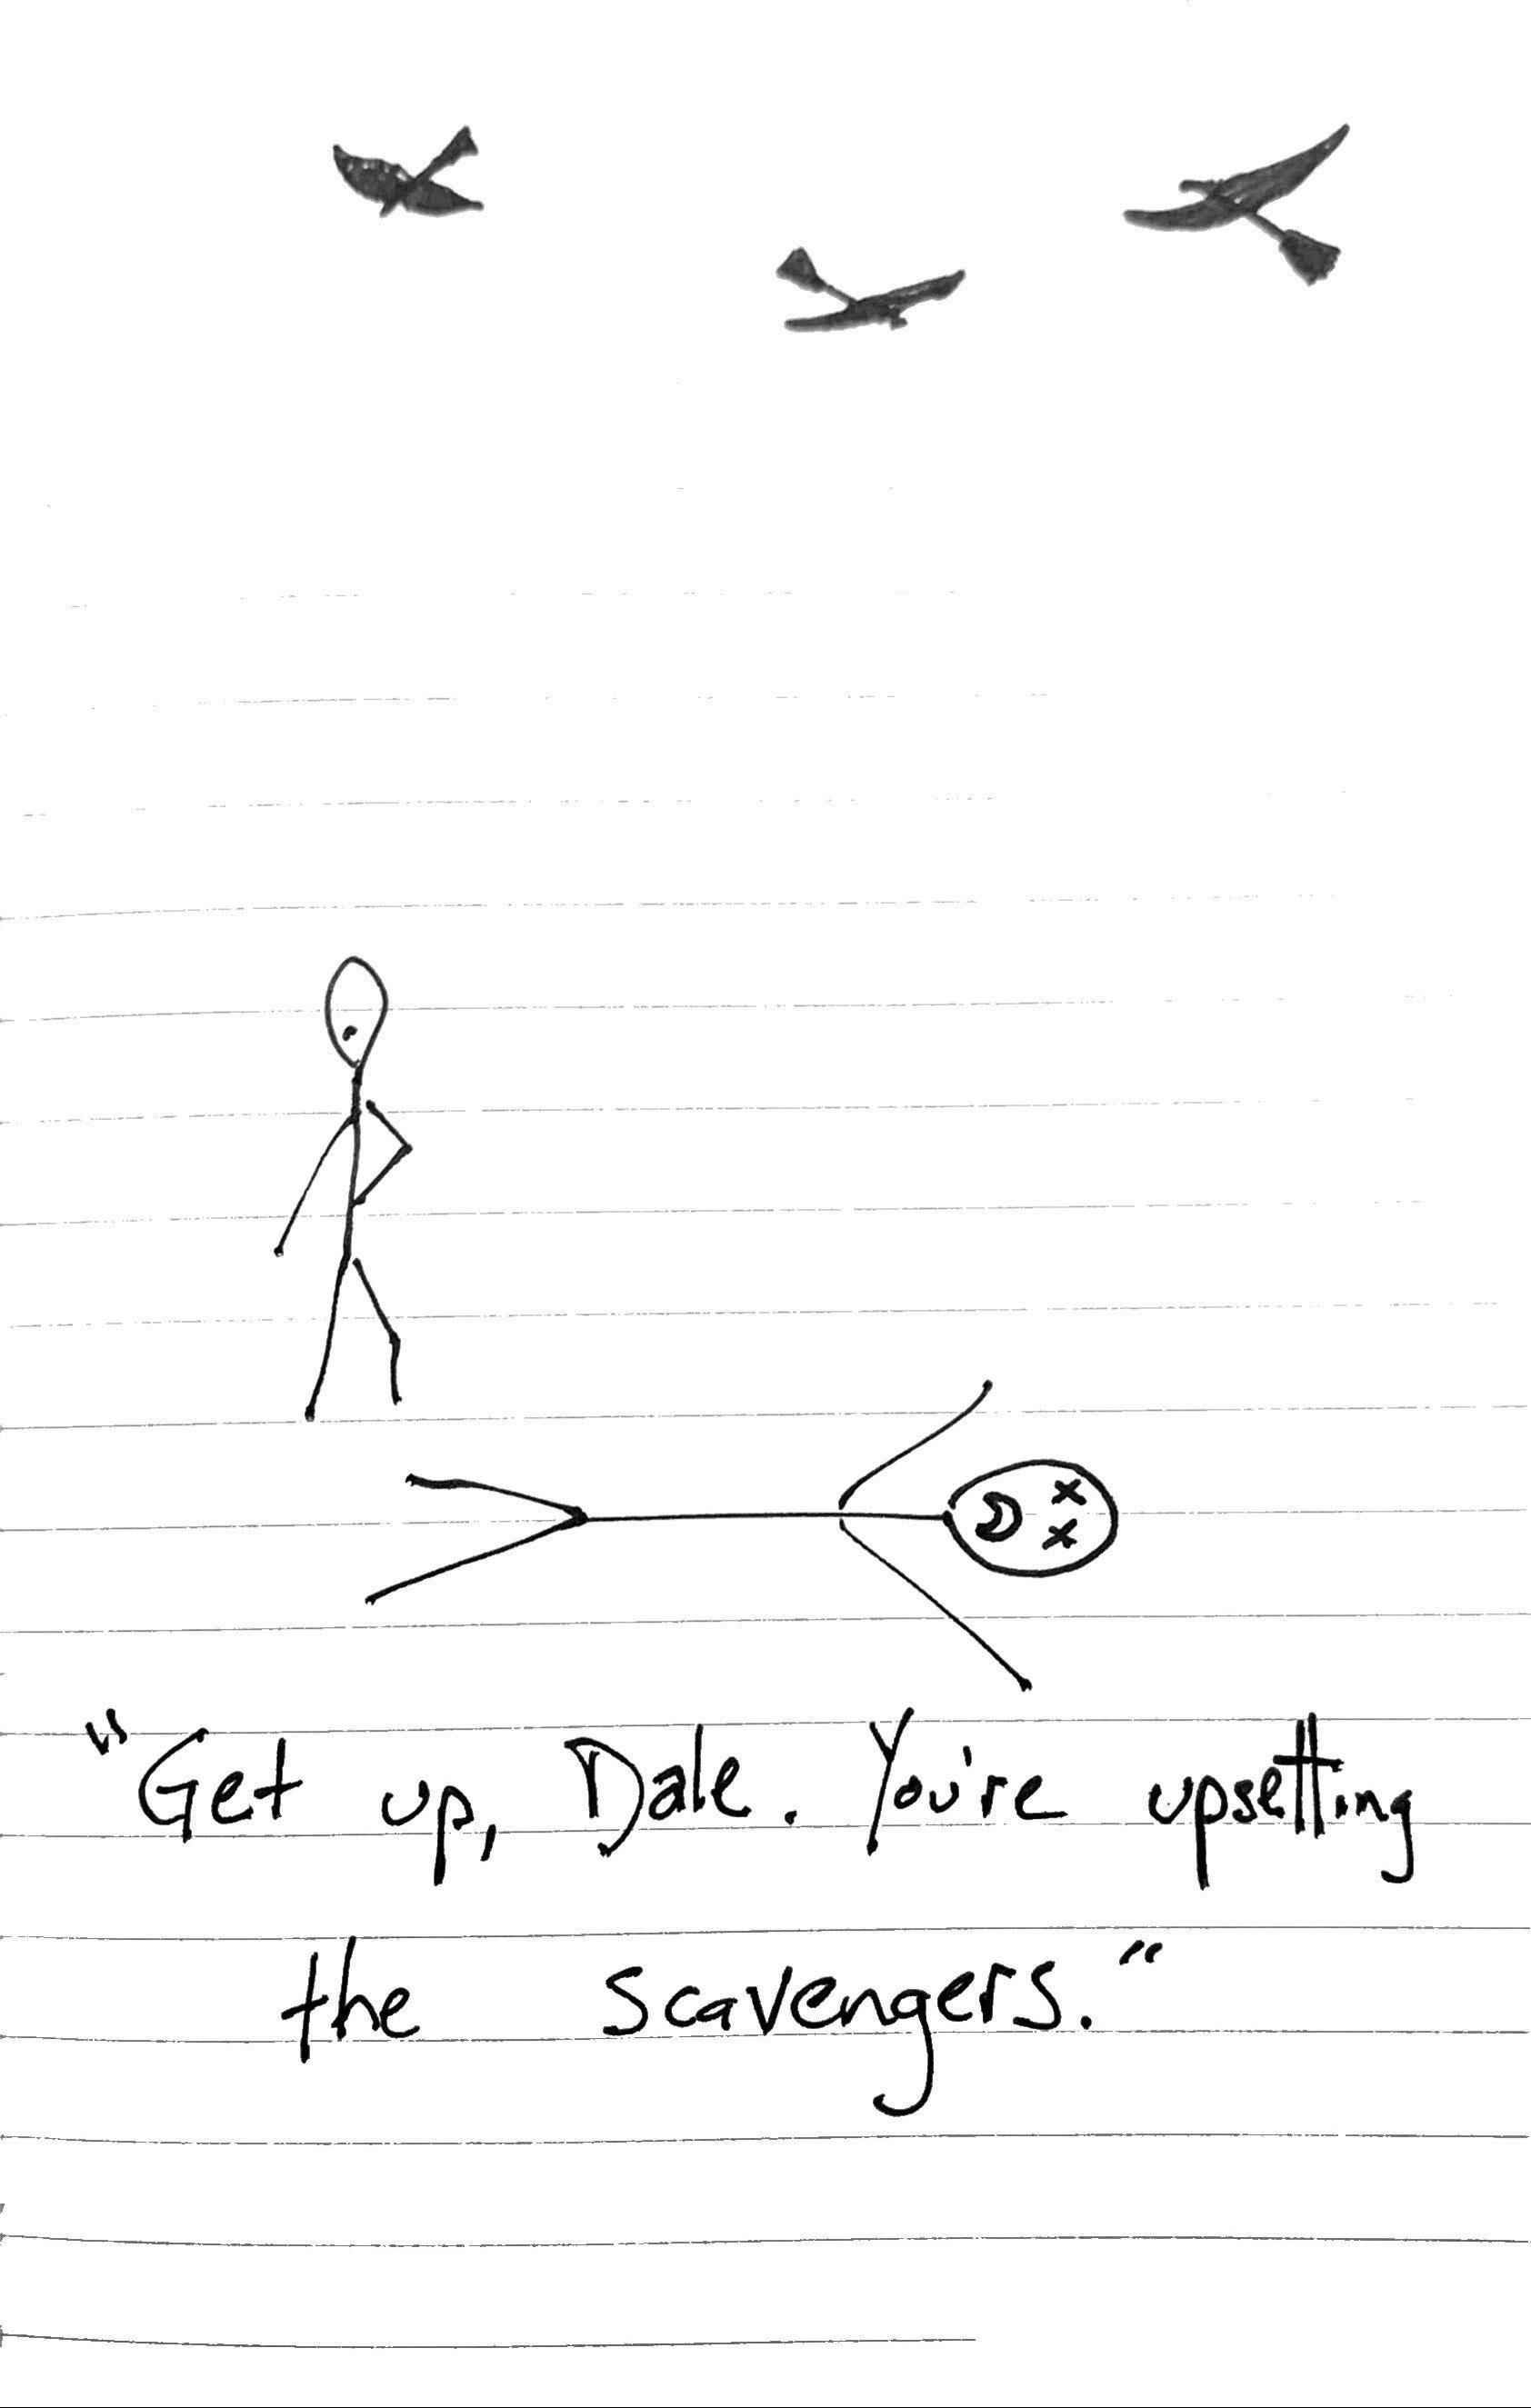 "Get up, Dale. You're upsetting
the scavengers."